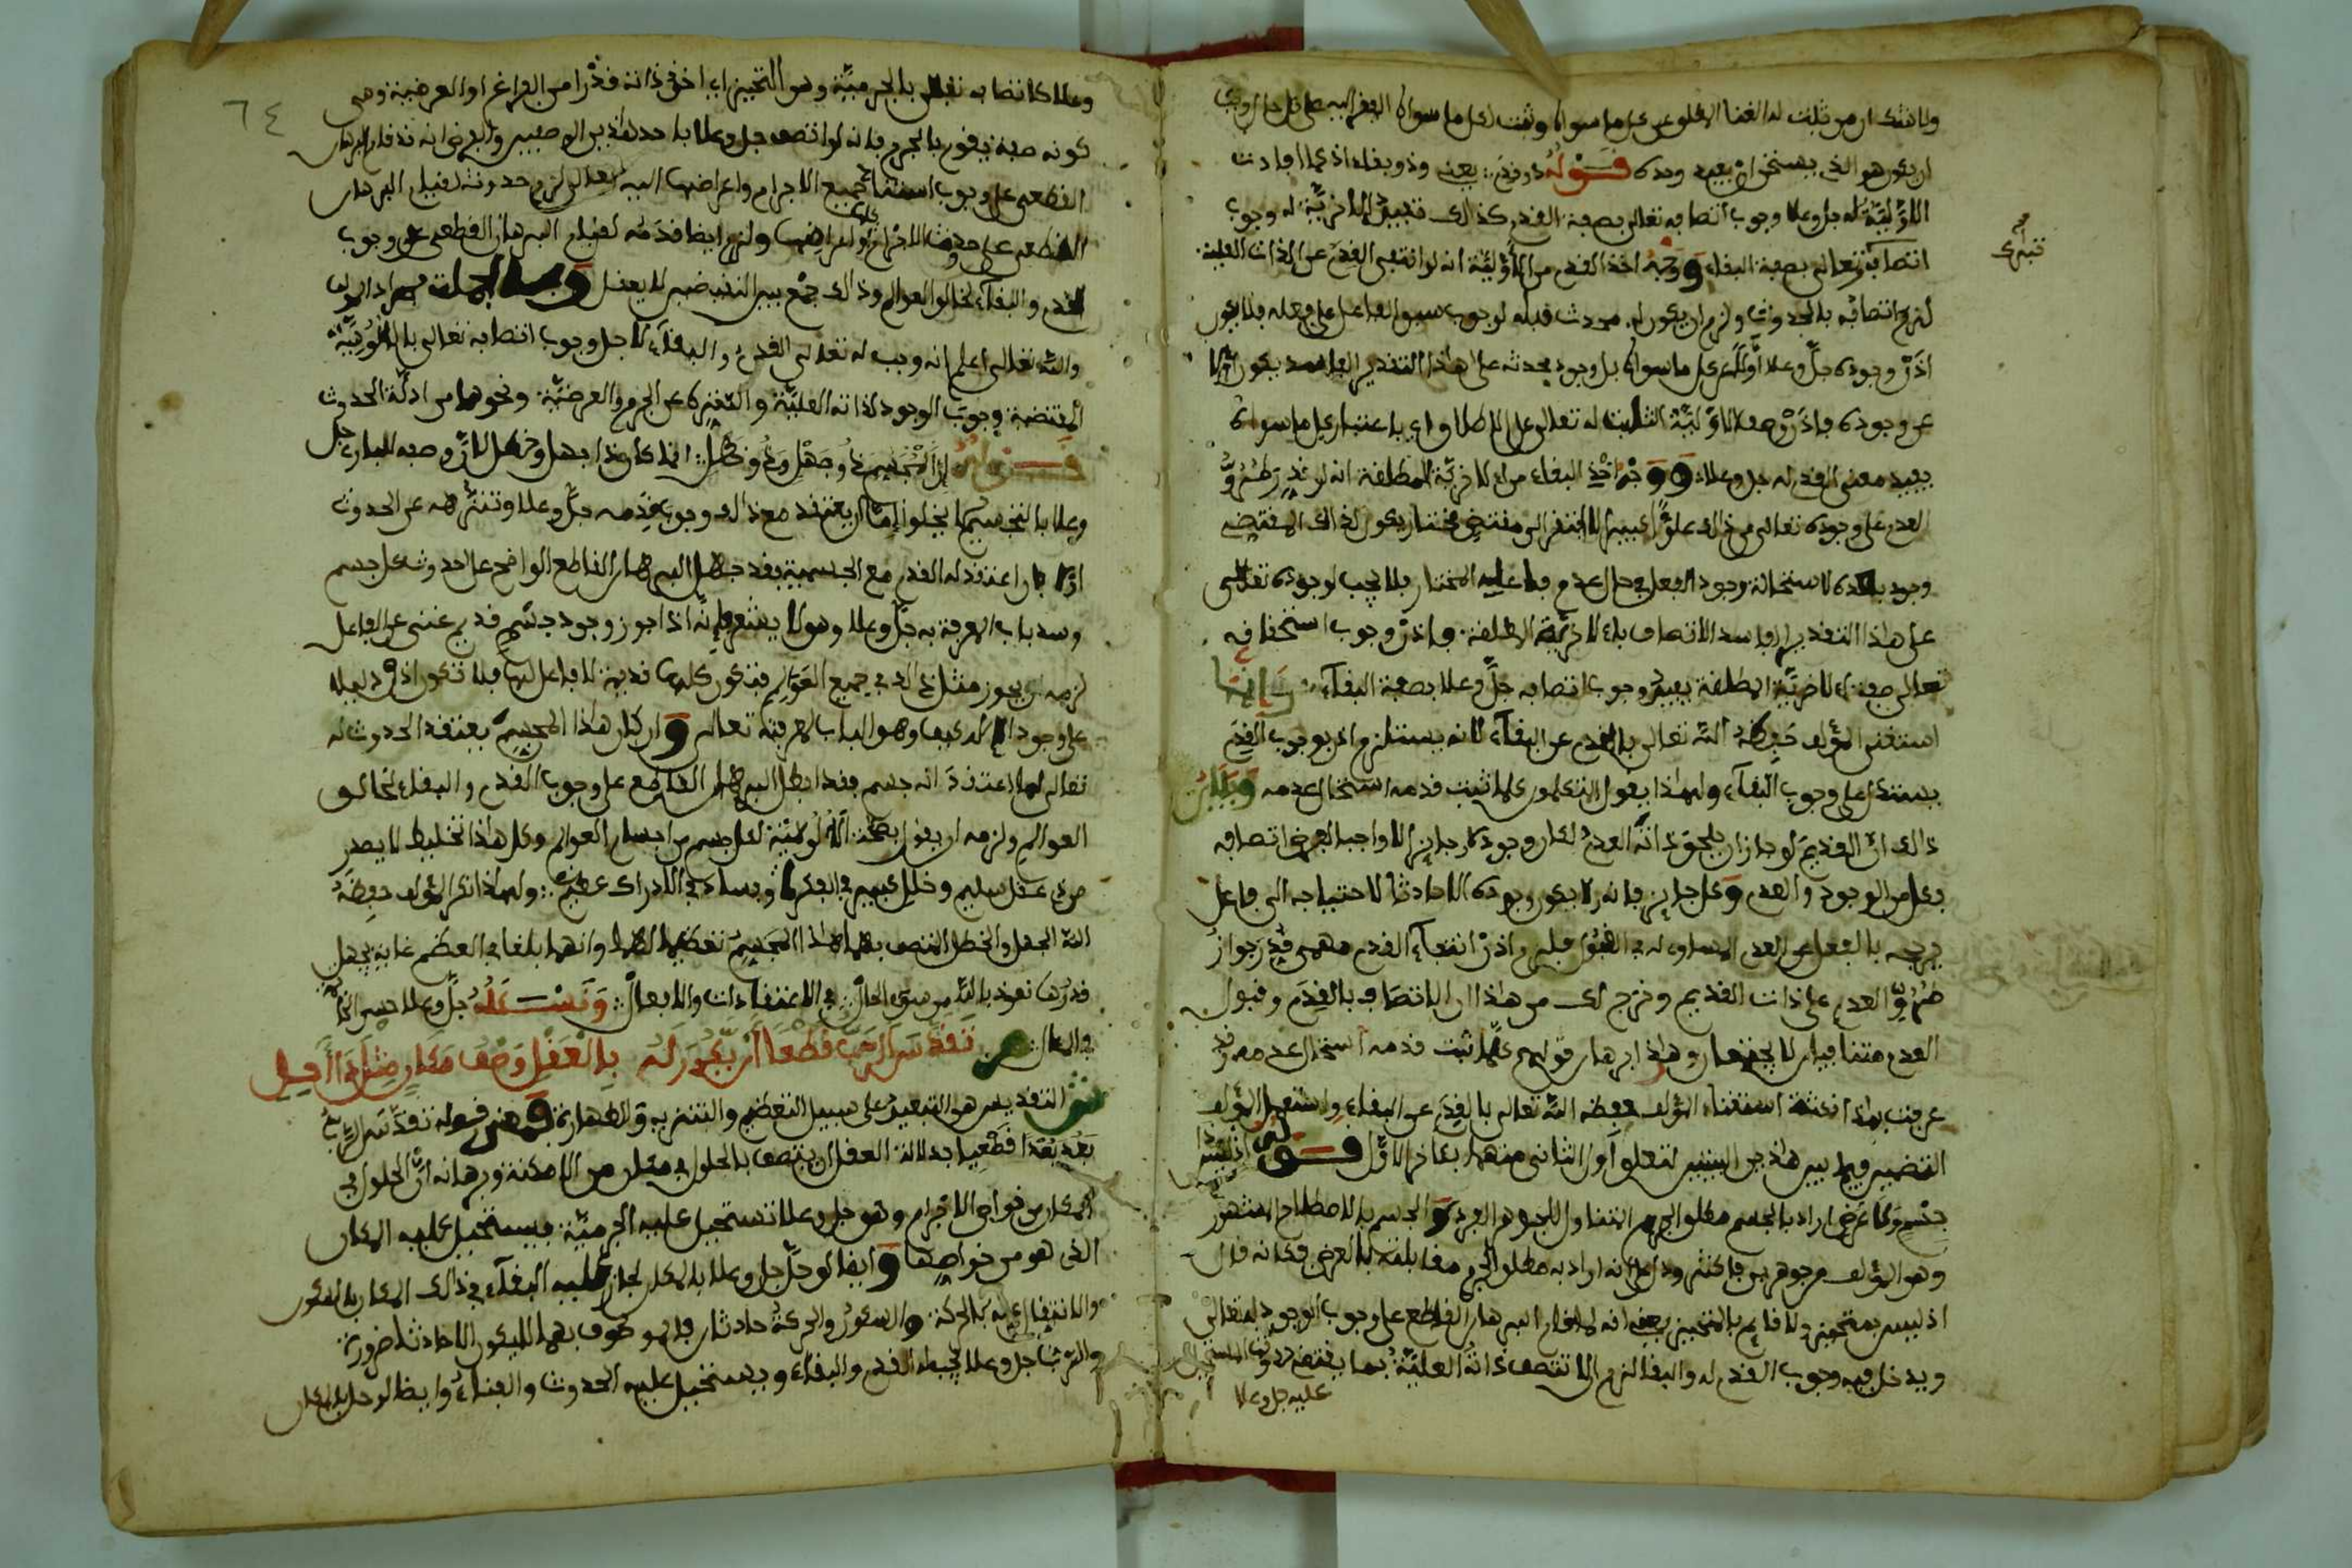 ولا شك ان من ثبت له الغنا المطلق عن كل ما سواه وثبت لكل ما سواه
ان يكون هو الذي يستحق ان يعبد وحده قوله ذو قدم يعني وذو بقاء اذ كما افادت
الاولية له جل وعلا وجوب اتصافه تعالى بصفة القدم كذلك تفيد الاخرية له وجوب
اتصافه تعالى بصفة البقاء ووجه اخذ القدم من الاولية انه لو انتفى القدم عن الذات العلية
لزم اتصافه بالحدوث ولزم ان يكون له محدث قبله لوجوب سبق الفاعل على فعله فلا يكون
اذن وجوده جل وعلا اولا عن كل ما سواه بل وجود محدثه على هذا التقدير
عن وجوده فاذن وصف الاولية الثابت له تعالى على الاطلاق اي باعتبار كل ما سواه
يفيد معنى القدم له جل وعلا ووجه اخذ البقاء من الاخرية المطلقة انه لو قدر طرو
العدم على وجوده تعالى عن ذلك علوا كبيرا لافتقر الى مقتض مختار يكون لذلك المقتضي
وجود بعده لاستحالة وجود الفعل في حال عدم فاعله المختار فلا يجب لوجوده تعالى
على هذا التقدير الفاسد الاتصاف بالاخرية المطلقة فاذن وجوب استحقاقه
تعالى صفة الاخرية المطلقة يفيد وجوب اتصافه جل وعلا بصفة البقاء وانما
استغنى المؤلف حفظه الله تعالى بالقدم عن البقاء لانه يستلزمه اذ بوجوب القدم
يستدل على وجوب البقاء ولهذا يقول المتكلمون كلما ثبت قدمه استحال عدمه وبيان
ذلك ان القديم لو جاز ان يلحق ذاته العدم لكان وجوده جايزا لا واجبا لفرض اتصافه
بكل من الوجود والعدم وكل جايز فانه لا يكون وجوده الا حادثا لاحتياجه الى فاعل
يرجحه بالفعل على العدم المساوي له في القبول قبله واذن انتفاء القدم مهما قدر جواز
طرو العدم على ذات القديم وخرج لك من هذا ان الاتصاف بالقدم وقبول
العدم متنافيان لا يجتمعان وهذا برهان قولهم كلما ثبت قدمه استحال عدمه وقد
عرفت بهذا نكتة استغناء المؤلف حفظه الله تعالى بالقدم عن البقاء
قوله
جسم ولا عرض اراد بالجسم مطلق الجرم المتناول للجوهر الفرد والجسم بالاصطلاح المشهور
وهو المؤلف من جوهرين فاكثر ودل على انه اراد به مطلق الجرم مقابلته بالعرض فكانه قال
اذ ليس بمتحيز ولا قايم بالمتحيز يعني انه لما قام البرهان القاطع على وجوب الوجود له تعالى
ويدخل فيه وجوب القدم له والبقا لزم ان لا تتصف ذاته العلية بما يقتضي
عليه جل وعلا
تنبيه
٦٤
وعلا كاتصافه تعالى بالجرمية وهو التحيز اي اخذ ذاته قدرا من الفراغ او العرضية وهي
كونه صفة يقوم بالجرم فانه لو اتصف جل وعلا باحد هذين الوصفين والفرض انه قد قام البرهان
القطعي على وجوب استناد جميع الاجرام واعراضها اليه تعالى لزم حدوثه لقيام البرهان
القطعي على حدوث الاجرام واعراضها ولزم ايضا قدمه لقيام البرهان القطعي على وجوب
القدم والبقاء لخالق العوالم وذلك جمع بين النقيضين لا يعقل وبالجملة فمراد المؤلف
والله تعالى اعلم انه وجب له تعالى القدم والبقاء لاجل وجوب اتصافه تعالى بالالوهية
المقتضية وجوب الوجود لذاته العلية والتنزه عن الجرمية والعرضية ونحوها من ادلة الحدوث
قوله ان المجسم ذو جهل وذو خطل انما كان ذا جهل وخطل لان وصفه للباري جل
وعلا بالتجسيم لا يخلو اما ان يعتقد مع ذلك وجوب قدمه جل وعلا وتنزهه عن الحدوث
او لا فان اعتقد له القدم مع الجسمية فقد جهل البرهان القاطع الواضح على حدوث كل جسم
وسد باب المعرفة به جل وعلا وهو لا يشعر فانه اذا جوز وجود جسم قديم غني عن الفاعل
لزمه ان يجوز مثل ذلك في جميع العوالم فتكون كلها قديمة لا فاعل لها فلا تكون اذن دليلا
على وجود الاله كيف وهو الباب لمعرفته تعالى وان كان هذا المجسم يعتقد الحدوث له
تعالى لما اعتقد انه جسم فقد ابطل البرهان القاطع على وجوب القدم والبقاء لخالق
العوالم ولزمه ان يقول بصحة الالوهية لكل جسم من اجسام العوالم وكل هذا تخليط لا يصدر
من ذي عقل سليم وخلل كبير في الفكر وفساد في الادراك عظيم ولهذا ذكر المؤلف حفظه
الله الجهل والخطل المتصف بهما هذا المجسم تعظيما لهما وانهما بلغا في العظم غاية يجهل
قدرها نعوذ بالله من سوء الحال في الاعتقادات والافعال ونسئله جل وعلا حسن
والمآل ص تقدس الرب قطعا ان يكون له بالعقل وصف مكان مثل ذا القيل
ش التقديس هو التبعيد على سبيل التعظيم والتنزيه والطهارة فمعنى قوله تقدس الرب
بعد بعدا قطعيا بدلالة العقل ان يتصف بالحلول في مكان من الامكنة وبرهانه ان الحلول في
المكان من خواص الاجرام وهو جل وعلا تستحيل عليه الجرمية فيستحيل عليه المكان
الذي هو من خواصها وايضا لو حل جل وعلا بالمكان لجاز عليه البقاء في ذلك المكان بالسكون
والانتقال عنه بالحركة والسكون والحركة حادثان فالموصوف بهما لا يكون الا حادثا ضرورة
والرب جل وعلا يجب له القدم والبقاء ويستحيل عليه الحدوث والفناء وايضا لو حل بالمكان